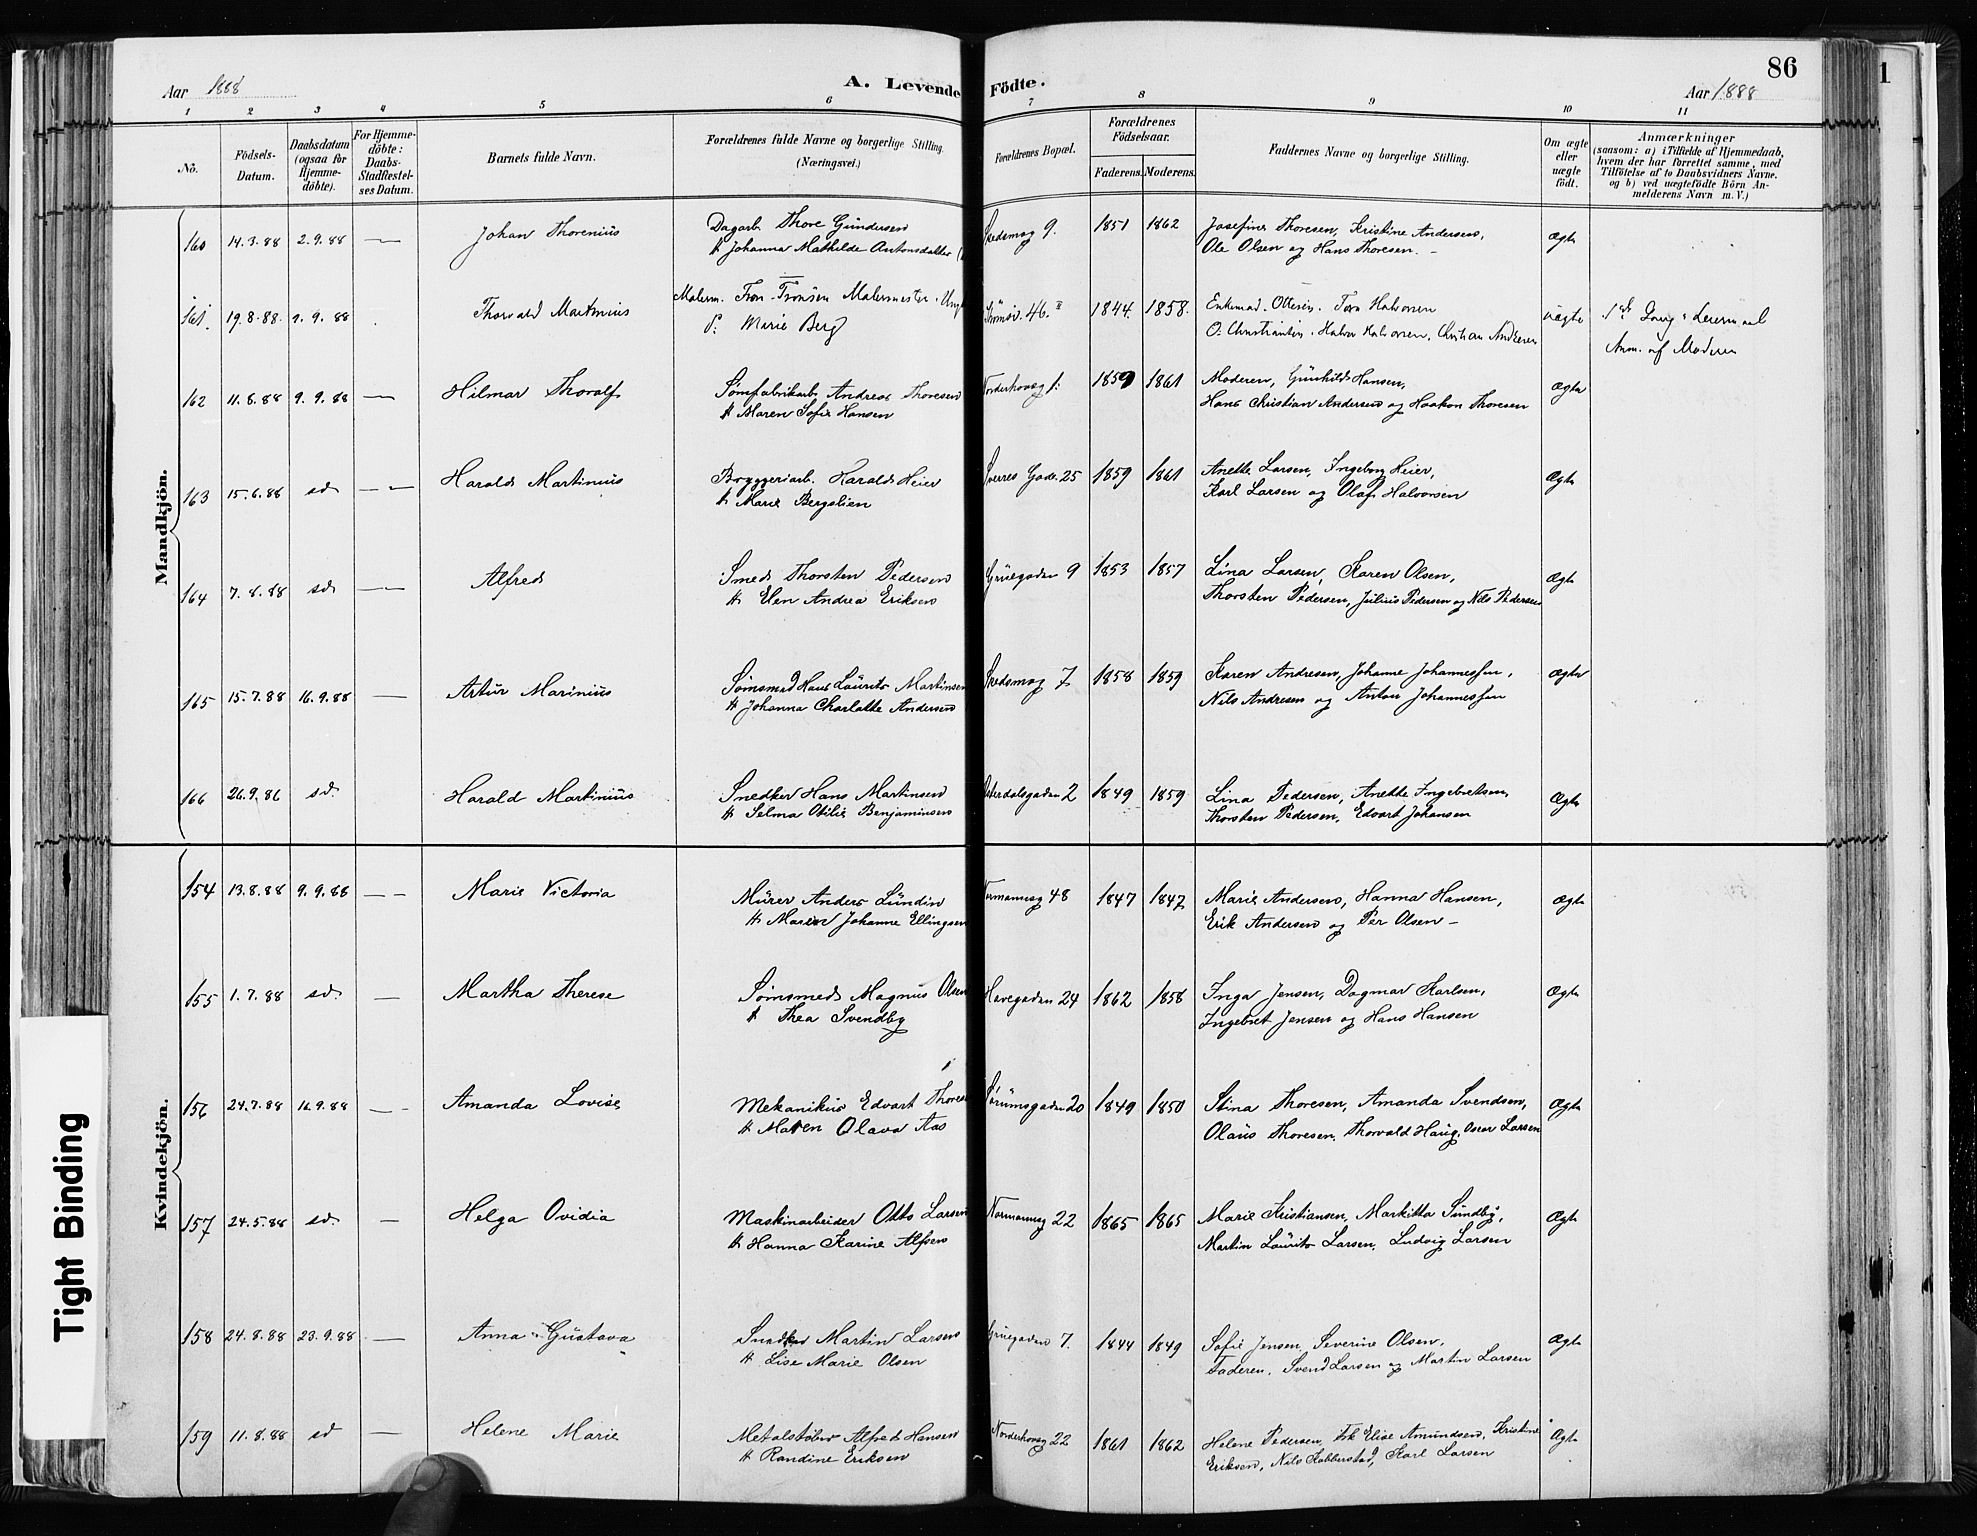 Aar 1888
A. Levende Födte.
Aar 1888
86
1
1 2 3 4 5 6 7 8 9 10 11
No.
Födsels-Datum.
Daabsdatum (ogsaa for Hjemme-döbte).
For Hjemme-döbte: Daabs-Stadfæstel-ses Datum.
Barnets fulde Navn.
Forældrenes fulde Navne og borgerlige Stilling. (Næringsvei.)
Forældrenes Bopæl.
Forældrenes Födselsaar.
Faderens. Moderens.
Faddernes Navne og borgerlige Stilling.
Om ægte eller uægte födt.
Anmærkninger
(saasom: a) i Tilfælde af Hjemmedaab, hvem der har forrettet samme, med Tilföielse af to Daabsvidners Navne. og b) ved uægtefödte Börn An-melderens Navn m. V.)
Mandkjön.
160 14.3.88 2.9.88 — Johan Thorenius Dagarb. Thore Gundersen Skedsmog 9. 1851 1862 Josefine Thoresen, Kristine Andersen, Ægte
& Johanna Mathilde Antonsdatter Ole Olsen og Hans Thoresen. –
161. 19.8.88. 9.9.88 Thorvald Martinius Malerm. Tron Tronsen Malermester. Ungk 46. II 1844. 1858. Enkemad. Ottesen. Tora Halvorsen uægte
P. Marie Berg O. Christiansen. Halvor Halvorsen, Christian Andersen Anm. af Moderen
162 11.8.88 9.9.88 — Hilmar Thoralf Sømfabrikarb. Andreas Thoresen Norderhovsg 1. 1859 1861 Moderen, Gunhild Hansen, Ægte
& Maren Sofie Hansen Hans Christian Andersen og Haakon Thoresen
163 15.6.88 sd — Harald Martinius Bryggeriarb. Harald Heier Sverres Gade 25 1859 1861 Anette Larsen, Ingeborg Heier, Ægte
& Marie Bergslien Karl Larsen og Olaf Halvorsen
164 7.8.88 sd — Alfred Smed Thorsten Pedersen Gruegaden 9 1853 1857 Lina Larsen, Karen Olsen, Ægte
& Elen Andrea Eriksen Thorsten Pedersen, Julius Pedersen og Nils Pedersen
165 15.7.88 16.9.88 — Artur Marinius Sømsmed Hans Laurits Martinsen Skedsmog 7 1858 1859 Karen Andresen, Johanne Johannessen, Ægte
& Johanna Charlotte Andersen Nils Andresen og Anton Johannessen
166 26.9.86 sd. Harald Martinius Snedker Hans Martinsen Østerdalsgaden 2 1849 1859 Lina Pedersen, Anette Ingebretsen, Ægte
& Selma Otilie Benjaminsen Thorsten Pedersen, Edvart Johansen
Kvindekjön.
154 13.8.88 9.9.88 — Marie Victoria Murer Anders Lundin Normannsg 48 1847 1847 Marie Andersen, Hanna Hansen, Ægte
& Maren Johanne Ellingsen Erik Andersen og Per Olsen –
155 1.7.88 sd. — Martha Therese Sømsmed Magnus Olsen Havegaden 24 1862 1858 Inga Jensen, Dagmar Karlsen, Ægte
& Thea Svendby Ingebret Jensen og Hans Hansen
156 24.7.88 16.9.88 — Amanda Lovise Mekanikus Edvart Thoresen Sørumsgaden 20 1849 1850 Stina Thoresen, Amanda Svendsen, Ægte
& Maren Olava Aas Olaus Thoresen, Thorvald Haug, Oscar Larsen
157 24.5.88 sd. — Helga Ovidia Maskinarbeider Otto Larsen Normannsg 22 1865 1865 Marie Kristiansen, Markitta Sundby, Ægte
& Hanna Karine Alfsen Martin Laurits Larsen, Ludvig Larsen
158 24.8.88 23.9.88 — Anna Gustava Snedker Martin Larsen Gruegaden 7. 1844 1849 Sofie Jensen, Severine Olsen, Ægte
& Lise Marie Olsen Faderen, Svend Larsen og Martin Larsen
159 11.8.88 sd — Helene Marie Metalstøber Alfred Hansen Norderhovsg 22 1861 1862 Helene Pedersen, Frk Elise Amundsen, Kristine Ægte
& Randine Eriksen Eriksen, Nils Kabberstad, Karl Larsen
Tight Binding